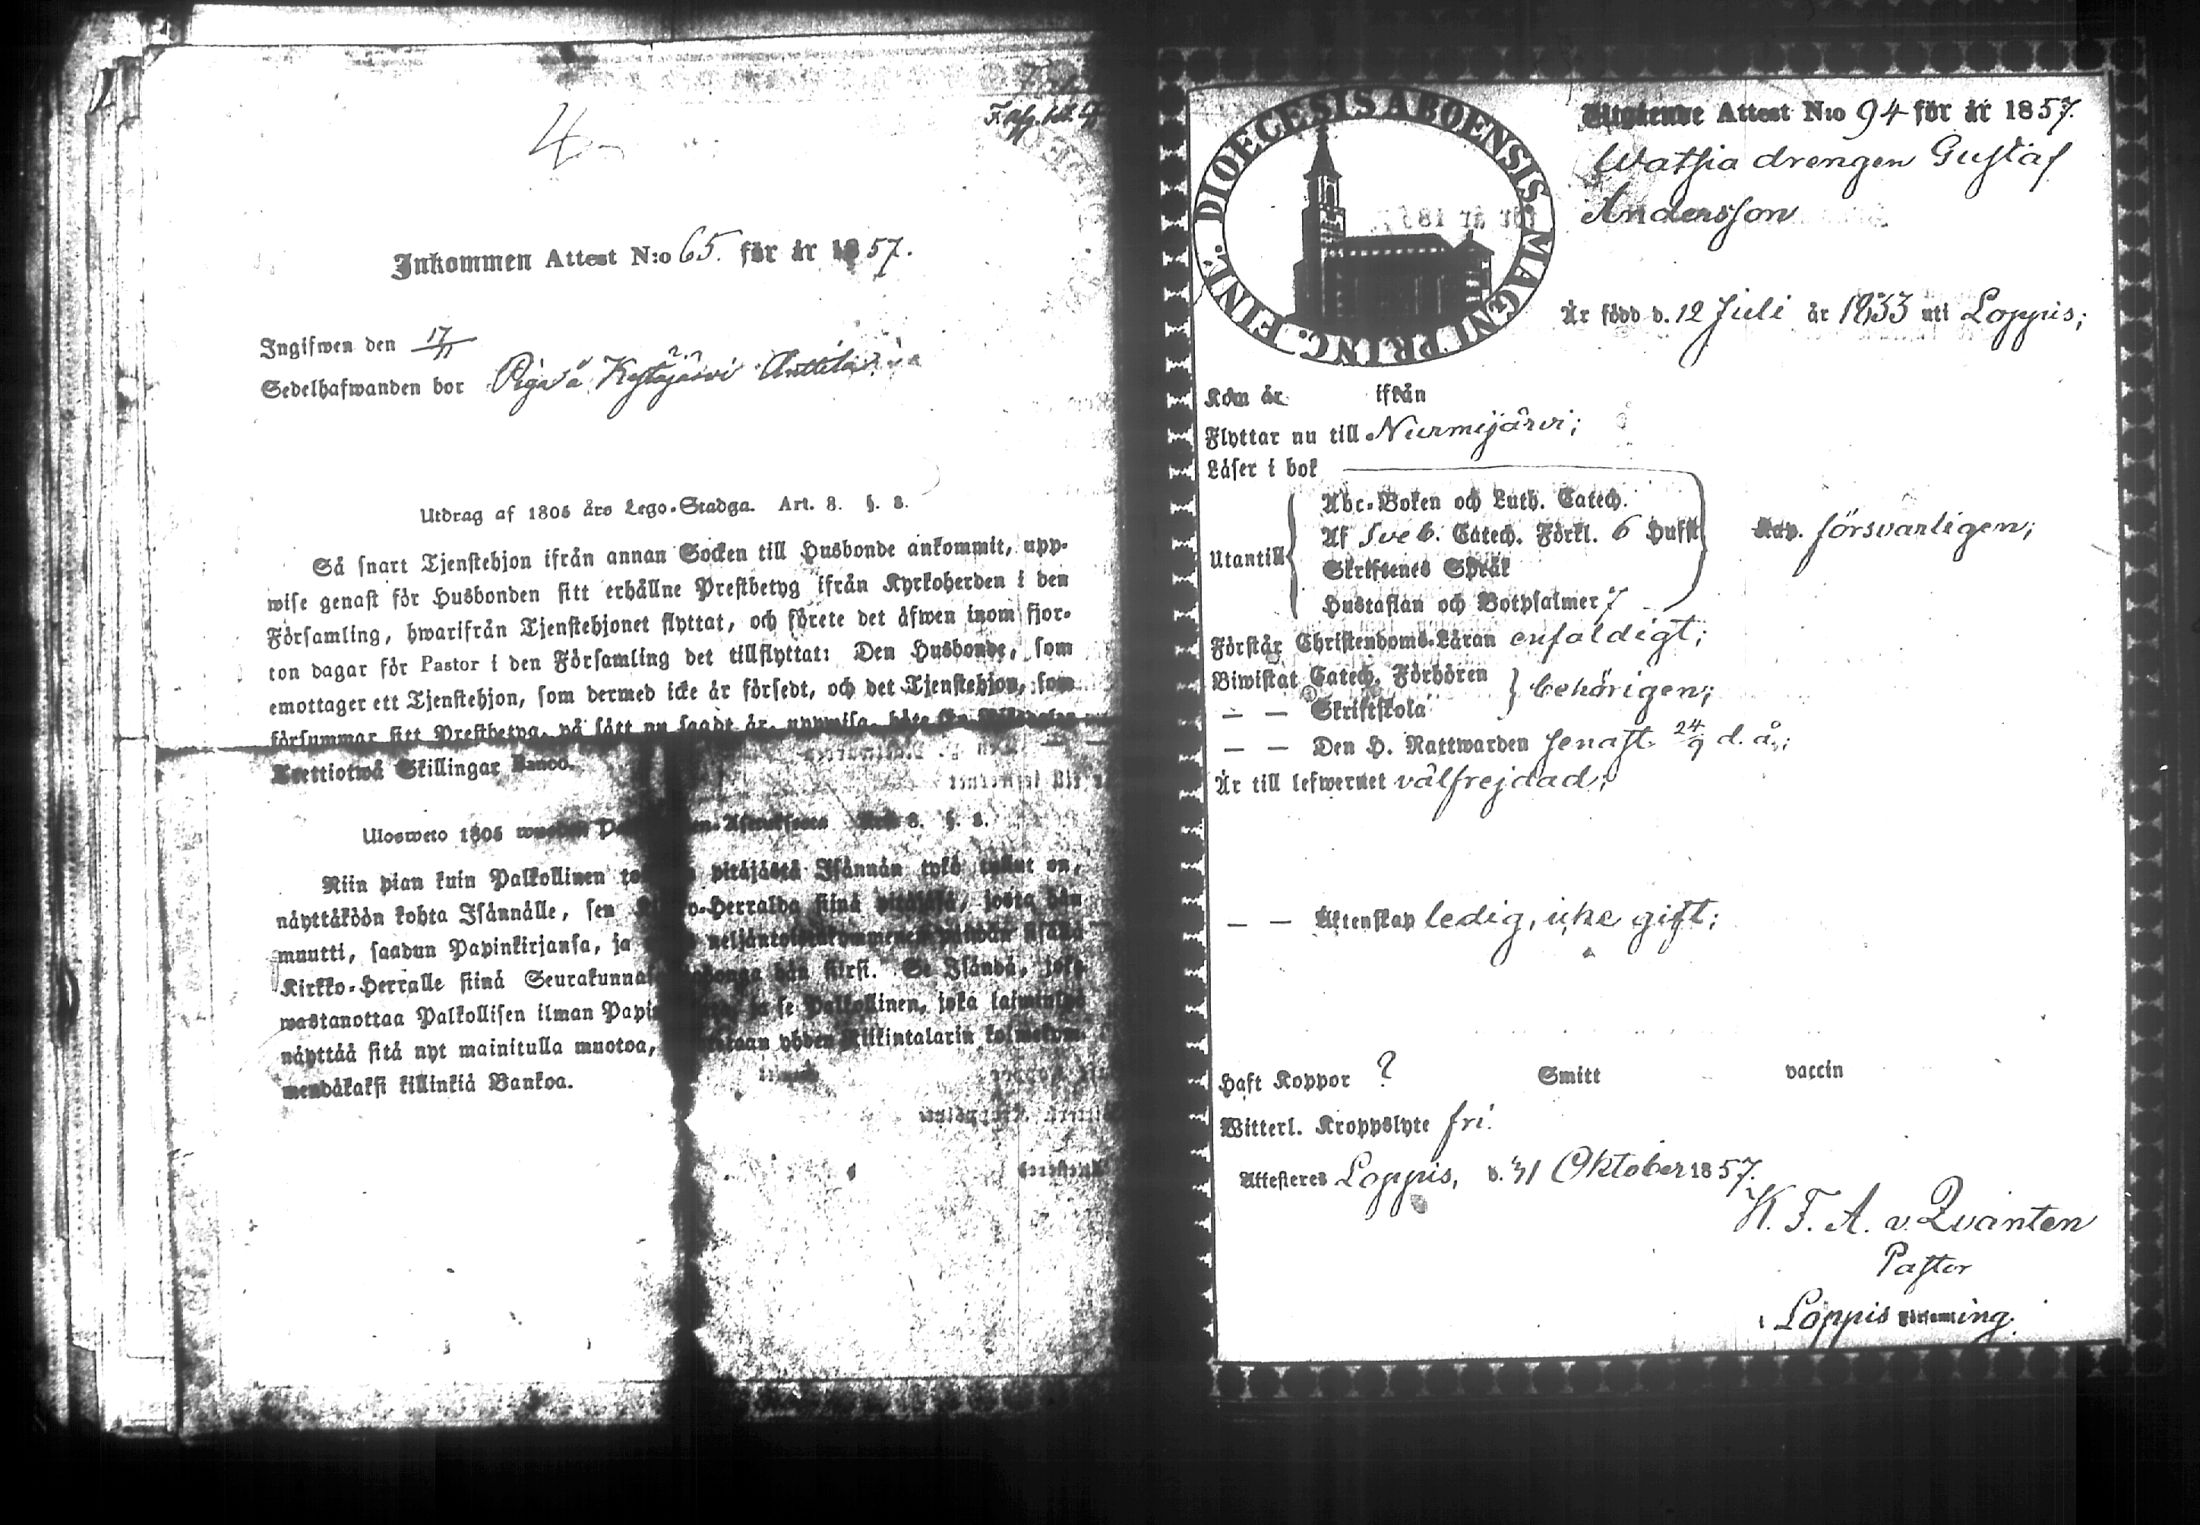 4
Inkommen Attest N:o 65. för år 1857.
Ingifwen den 17/11
Sedelhafwanden bor Piga å
Utdrag af 1805 års Lego-Stadga. Art. 8. §. 8.
Så snart Tjenstehjon ifrån annan Socken till Husbonde ankommit, upp-
wise genast för Husbonden sitt erhållne Prestbetyg ifrån Kyrkoherden i den
Församling, hwarifrån Tjenstehjonet flyttat, och förete det äfwen inom fjor-
ton dagar för Pastor i den Församling det tillflyttat: Den Husbonde, som
emottager ett Tjenstehjon, som dermed icke är försedt, och det Tjenstehjon, som
försummar sitt Prestbetyg, på sätt nu sagdt är, uppwisa, böte En Riksdaler
Trettiotwå Skillingar Banco.
Ulosweto 1805 wuoden Art. 8. §. 8.
Niin pian kuin Palkollinen pitäjästä Isännän tykö tullut on,
näyttäköön kohta Isännälle, sen siinä pitäjäsä, josta hän
muutti, saadun Papinkirjansa, ja
Kirkko-Herralle siinä hän siirsi. Se Isändä, joka
wastanottaa Palkollisen ilman ja se Palkollinen, joka
näyttää sitä nyt mainitulla muotoa, yhden Riikintalarin kolmekym-
mendäkaksi killinkiä Bankoa.
DIOECESIS ABOENSIS. MAGNI PRING. FINL.
Utgående Attest N:o 94 för år 1857.
Watsia drengen Gustaf
Andersson
Är född d. 12 Juli år 1833 uti Loppis;
Kom år ifrån
Flyttar nu till Nurmijärvi;
Läser i bok
Abc-Boken och Luth. Catech.
Af Sveb. Catech. Förkl. 6 Hufst
Utantill
Skriftenes Språk
Hustaflan och Botpsalmer 7
försvarligen;
Förstår Christendoms-Läran enfaldigt;
Biwistat Catech. Förhören
behörigen;
— — Skriftskola
— — Den H. Nattwarden senast 24/9 d. å.;
Är till lefwernet välfrejdad;
— — Äktenskap ledig, icke gift;
Haft Koppor ? Smitt vaccin
Witterl. Kroppslyte fri.
Attesteres Loppis, d. 31 Oktober 1857.
K. F. A. v. Qvanten
Pastor
i Loppis Församling.